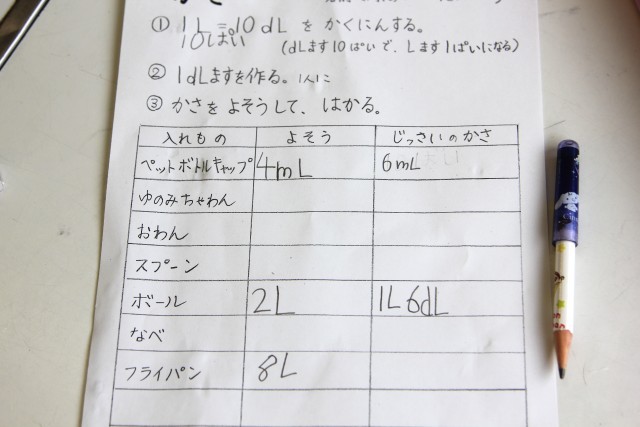 ① 1L=10dLをかくにんする。
10ぱい (dLます10ぱいで、Lます1ぱいになる)
② 1dLますを作る。1人に
③ かさをよそうして、はかる。
入れもの よそう じっさいのかさ
ペットボトルキャップ 4mL 6mL
ゆのみちゃわん
おわん
スプーン
ボール 2L 1L6dL
なべ
フライパン 8L